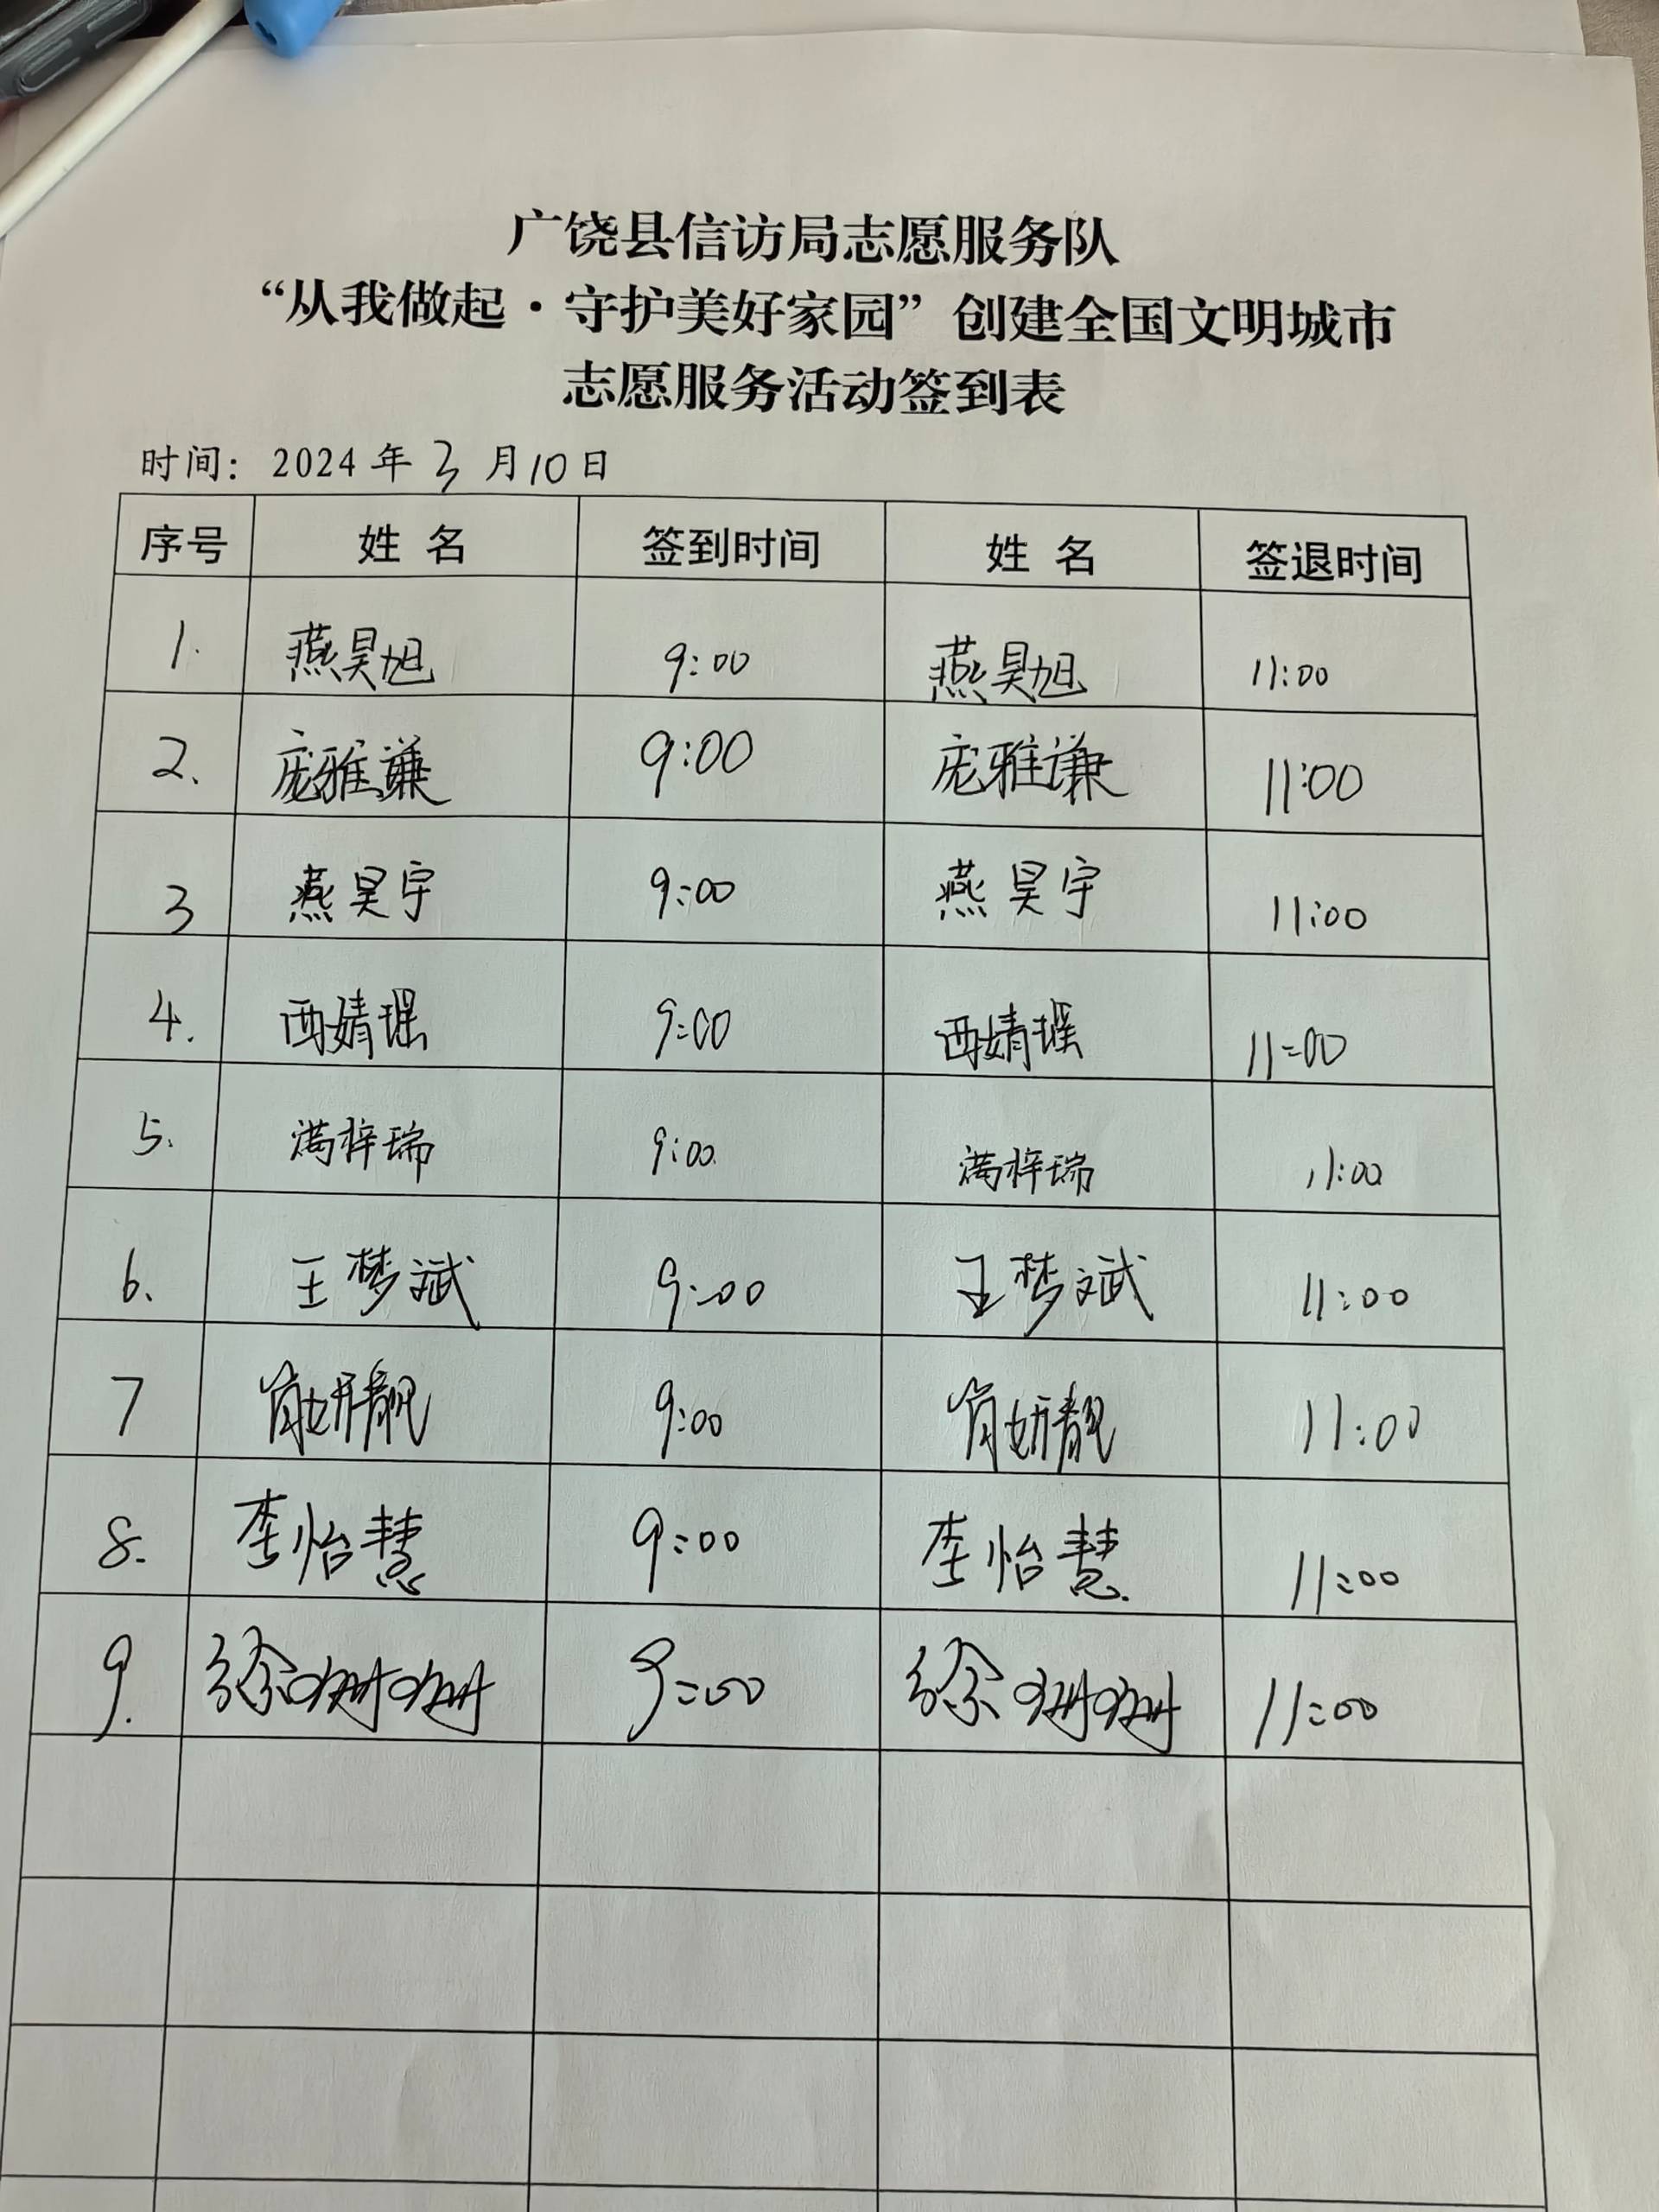 广饶县信访局志愿服务队
“从我做起·守护美好家园”创建全国文明城市
志愿服务活动签到表
时间：2024年3月10日
序号 姓名 签到时间 姓名 签退时间
1. 燕昊旭 9:00 燕昊旭 11:00
2. 庞雅谦 9:00 庞雅谦 11:00
3 燕昊宇 9:00 燕昊宇 11:00
4. 西婧瑶 9:00 西婧瑶 11:00
5. 满梓瑞 9:00 满梓瑞 11:00
6. 王梦斌 9:00 王梦斌 11:00
7 肖妍靓 9:00 肖妍靓 11:00
8. 李怡慧 9:00 李怡慧 11:00
9. 徐珊珊 9:00 徐珊珊 11:00